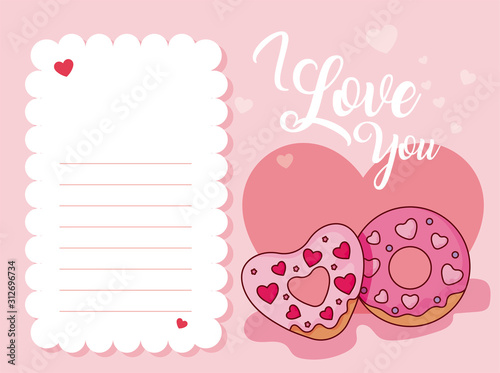 I
Love
You
Adobe Stock | #312696734